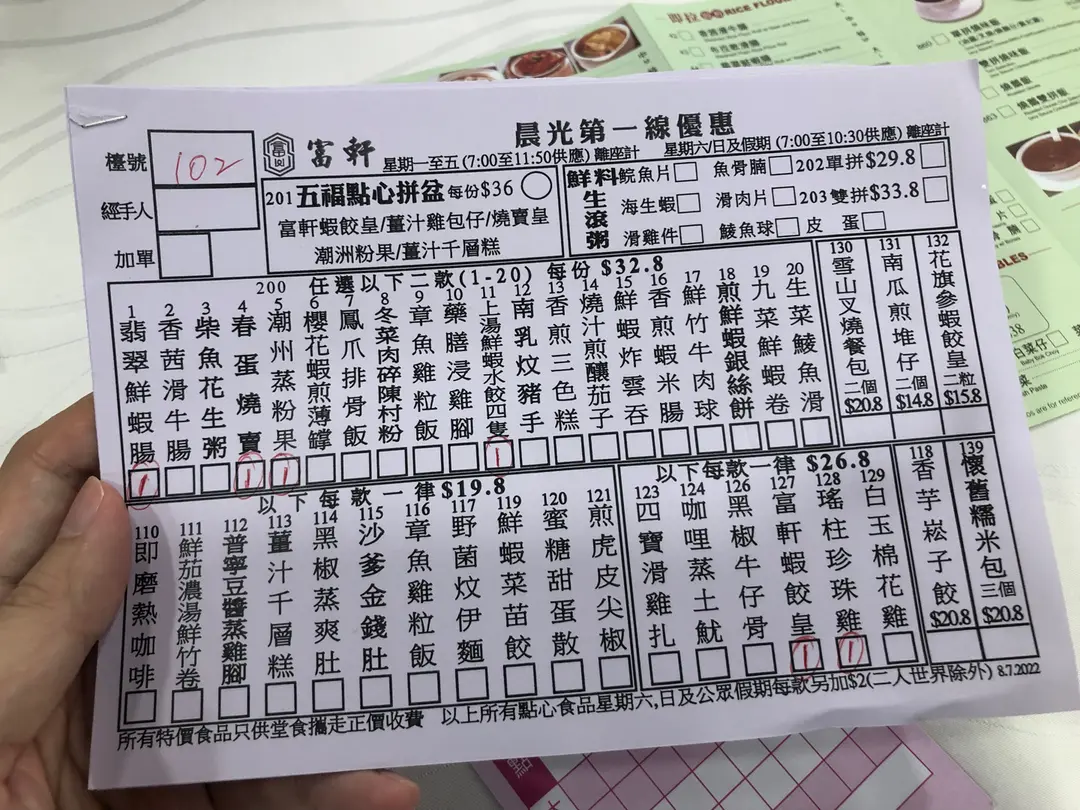 晨光第一線優惠
富軒
星期一至五(7:00至11:50供應)離座計
星期六/日及假期(7:00至10:30供應)離座計
檯號
102
經手人
加單
201五福點心拼盆每份$36
富軒蝦餃皇/薑汁雞包仔/燒賣皇
潮洲粉果/薑汁千層糕
鮮料生滾粥
鯇魚片 魚骨腩 202單拼$29.8
海生蝦 滑肉片 203雙拼$33.8
滑雞件 鯪魚球 皮蛋
200 任選以下二款(1-20)每份$32.8
1 翡翠鮮蝦腸 1
2 香茜滑牛腸
3 柴魚花生粥
4 春蛋燒賣 1
5 潮州蒸粉果 1
6 櫻花蝦煎薄罉
7 鳳爪排骨飯
8 冬菜肉碎陳村粉
9 章魚雞粒飯
10 藥膳浸雞腳
11 上湯鮮蝦水餃四隻 1
12 南乳炆豬手
13 香煎三色糕
14 燒汁煎釀茄子
15 鮮蝦炸雲吞
16 香煎蝦米腸
17 鮮竹牛肉球
18 煎鮮蝦銀絲餅
19 九菜鮮蝦卷
20 生菜鯪魚滑
130 雪山叉燒餐包 二個 $20.8
131 南瓜煎堆仔 二個 $14.8
132 花旗參蝦餃皇 二粒 $15.8
以下每款一律$19.8
110 即磨熱咖啡
111 鮮茄濃湯鮮竹卷
112 普寧豆醬蒸雞腳
113 薑汁千層糕
114 黑椒蒸爽肚
115 沙爹金錢肚
116 章魚雞粒飯
117 野菌炆伊麵
119 鮮蝦菜苗餃
120 蜜糖甜蛋散
121 煎虎皮尖椒
以下每款一律$26.8
123 四寶滑雞扎
124 咖哩蒸土魷
126 黑椒牛仔骨
127 富軒蝦餃皇 1
128 瑤柱珍珠雞 1
129 白玉棉花雞
118 香芋崧子餃 $20.8
139 懷舊糯米包 三個 $20.8
所有特價食品只供堂食攜走正價收費 以上所有點心食品星期六,日及公眾假期每款另加$2(二人世界除外) 8.7.2022